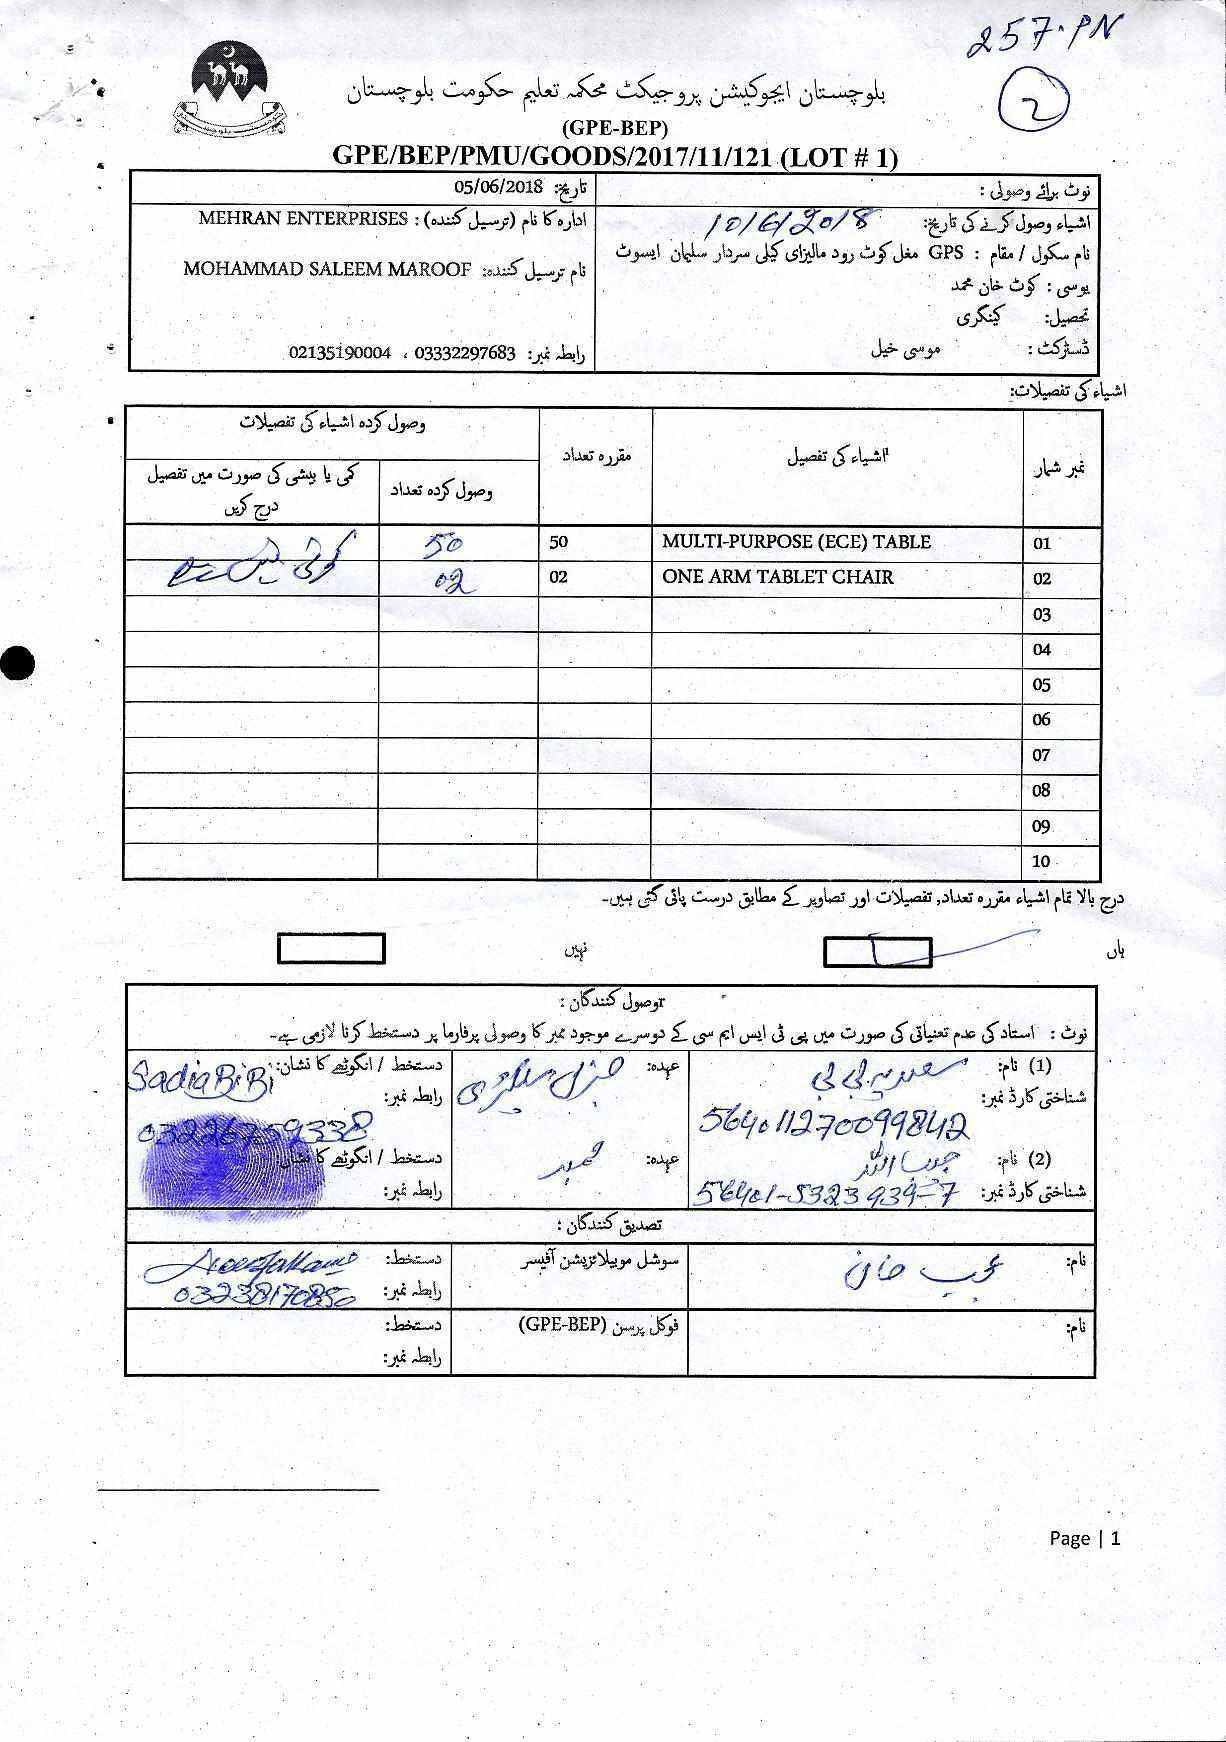 257.PN
2
بلوچستان ایجوکیشن پروجیکٹ محکمہ تعلیم حکومت بلوچستان
(GPE-BEP)
GPE/BEP/PMU/GOODS/2017/11/121 (LOT # 1)
نوٹ برائے وصولی :
تاریخ: 05/06/2018
اشیاء وصول کرنے کی تاریخ: 10/6/2018
ادارہ کا نام (ترسیل کنندہ) : MEHRAN ENTERPRISES
نام سکول / مقام : GPS مغل کوٹ رود مالیزای کیلی سردار سلیمان ایسوٹ
نام ترسیل کنندہ: MOHAMMAD SALEEM MAROOF
یوسی : کوٹ خان محمد
تحصیل: کینگری
ڈسٹرکٹ : موسی خیل
رابطہ نمبر: 03332297683 ، 02135190004
اشیاء کی تفصیلات:
نمبر شمار
اشیاء کی تفصیل
مقررہ تعداد
وصول کردہ اشیاء کی تفصیلات
وصول کردہ تعداد
کمی یا بیشی کی صورت میں تفصیل
درج کریں
01 MULTI-PURPOSE (ECE) TABLE 50 50
02 ONE ARM TABLET CHAIR 02 02
کوئی نہیں
03
04
05
06
07
08
09
10
درج بالا تمام اشیاء مقررہ تعداد, تفصیلات اور تصاویر کے مطابق درست پائی گئی ہیں۔
ہاں
نہیں
وصول کنندگان :
نوٹ : استاد کی عدم تعنیاتی کی صورت میں پی ٹی ایس ایم سی کے دوسرے موجود ممبر کا وصولی پرفارما پر دستخط کرنا لازمی ہے۔
(1) نام: سعدیہ بی بی
عہدہ: جنرل سیکٹری
دستخط / انگوٹھے کا نشان: Sadia BiBi
شناختی کارڈ نمبر: 564011270099842
رابطہ نمبر: 03226759338
(2) نام: حبیب اللہ
عہدہ: ممبر
دستخط / انگوٹھے کا نشان:
شناختی کارڈ نمبر: 56401-5323939-7
رابطہ نمبر:
تصدیق کنندگان :
نام: محب خان
سوشل موبیلائزیشن آفیسر
دستخط:
رابطہ نمبر: 03238170850
نام:
فوکل پرسن (GPE-BEP)
دستخط:
رابطہ نمبر:
Page | 1